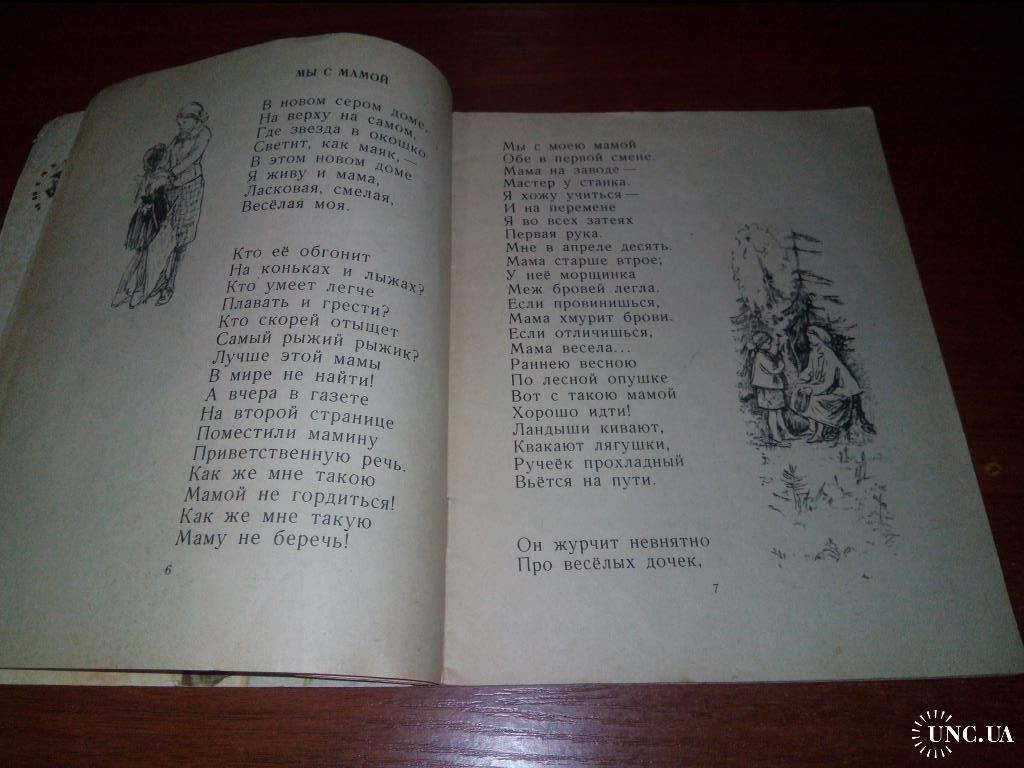 МЫ С МАМОЙ
В новом сером доме,
На верху на самом,
Где звезда в окошко
Светит, как маяк,—
В этом новом доме
Я живу и мама,
Ласковая, смелая,
Весёлая моя.
Кто её обгонит
На коньках и лыжах?
Кто умеет легче
Плавать и грести?
Кто скорей отыщет
Самый рыжий рыжик?
Лучше этой мамы
В мире не найти!
А вчера в газете
На второй странице
Поместили мамину
Приветственную речь.
Как же мне такою
Мамой не гордиться!
Как же мне такую
Маму не беречь!
6
Мы с моею мамой
Обе в первой смене.
Мама на заводе —
Мастер у станка.
Я хожу учиться —
И на перемене
Я во всех затеях
Первая рука.
Мне в апреле десять.
Мама старше втрое;
У неё морщинка
Меж бровей легла.
Если провинишься,
Мама хмурит брови.
Если отличишься,
Мама весела...
Раннею весною
По лесной опушке
Вот с такою мамой
Хорошо идти!
Ландыши кивают,
Квакают лягушки,
Ручеёк прохладный
Вьётся на пути.
Он журчит невнятно
Про весёлых дочек,
7
UNC.UA